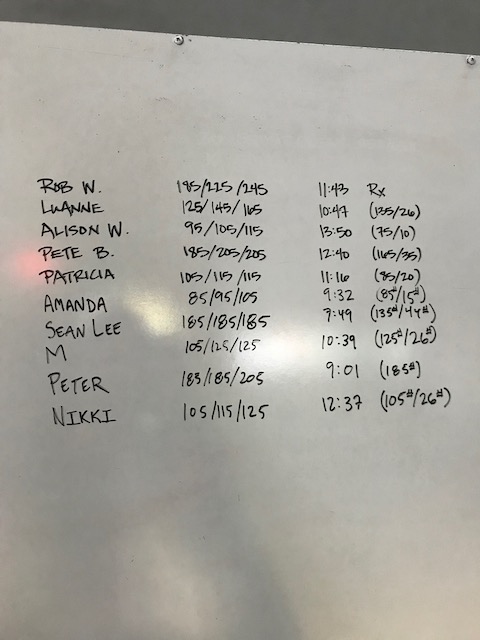 ROB W. 185/225/245 11:43 Rx
LUANNE 125/145/165 10:47 (135/26)
ALISON W. 95/105/115 13:50 (75/10)
PETE B. 185/205/205 12:40 (165/35)
PATRICIA 105/115/115 11:16 (85/20)
AMANDA 85/95/105 9:32 (85#/15#)
SEAN LEE 185/185/185 7:49 (135#/44#)
M 105/125/125 10:39 (125#/26#)
PETER 183/185/205 9:01 (185#)
NIKKI 105/115/125 12:37 (105#/26#)